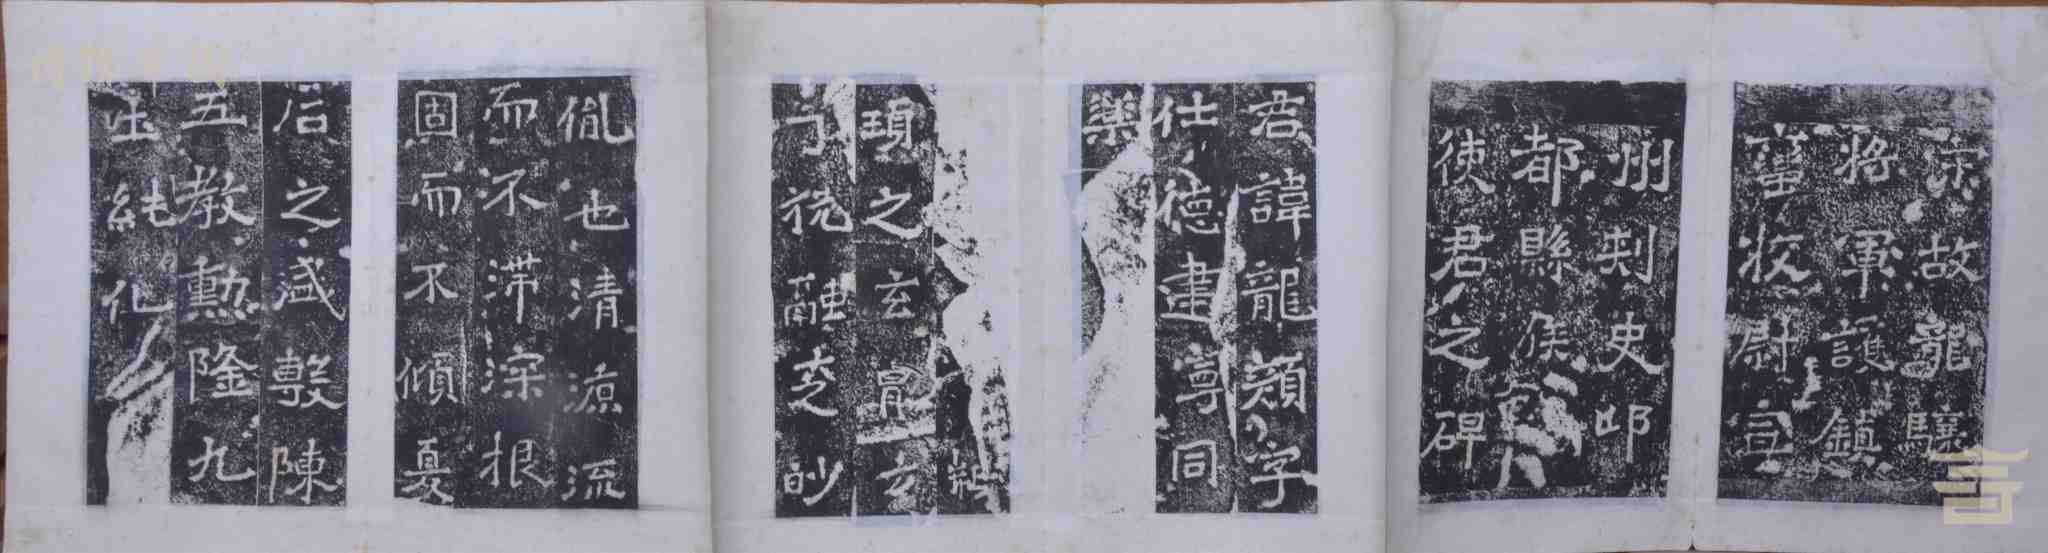 宋故龍驤
將軍護鎮
蠻挍尉寧
州刺史邛
都縣侯
使君之碑
君諱龍顏字
仕德建寧同
樂
顓
頊之玄胄
子祝融之眇
胤也清源流
而不滯深根
固而不傾夏
后之盛敷陳
五教勳隆九
土純化